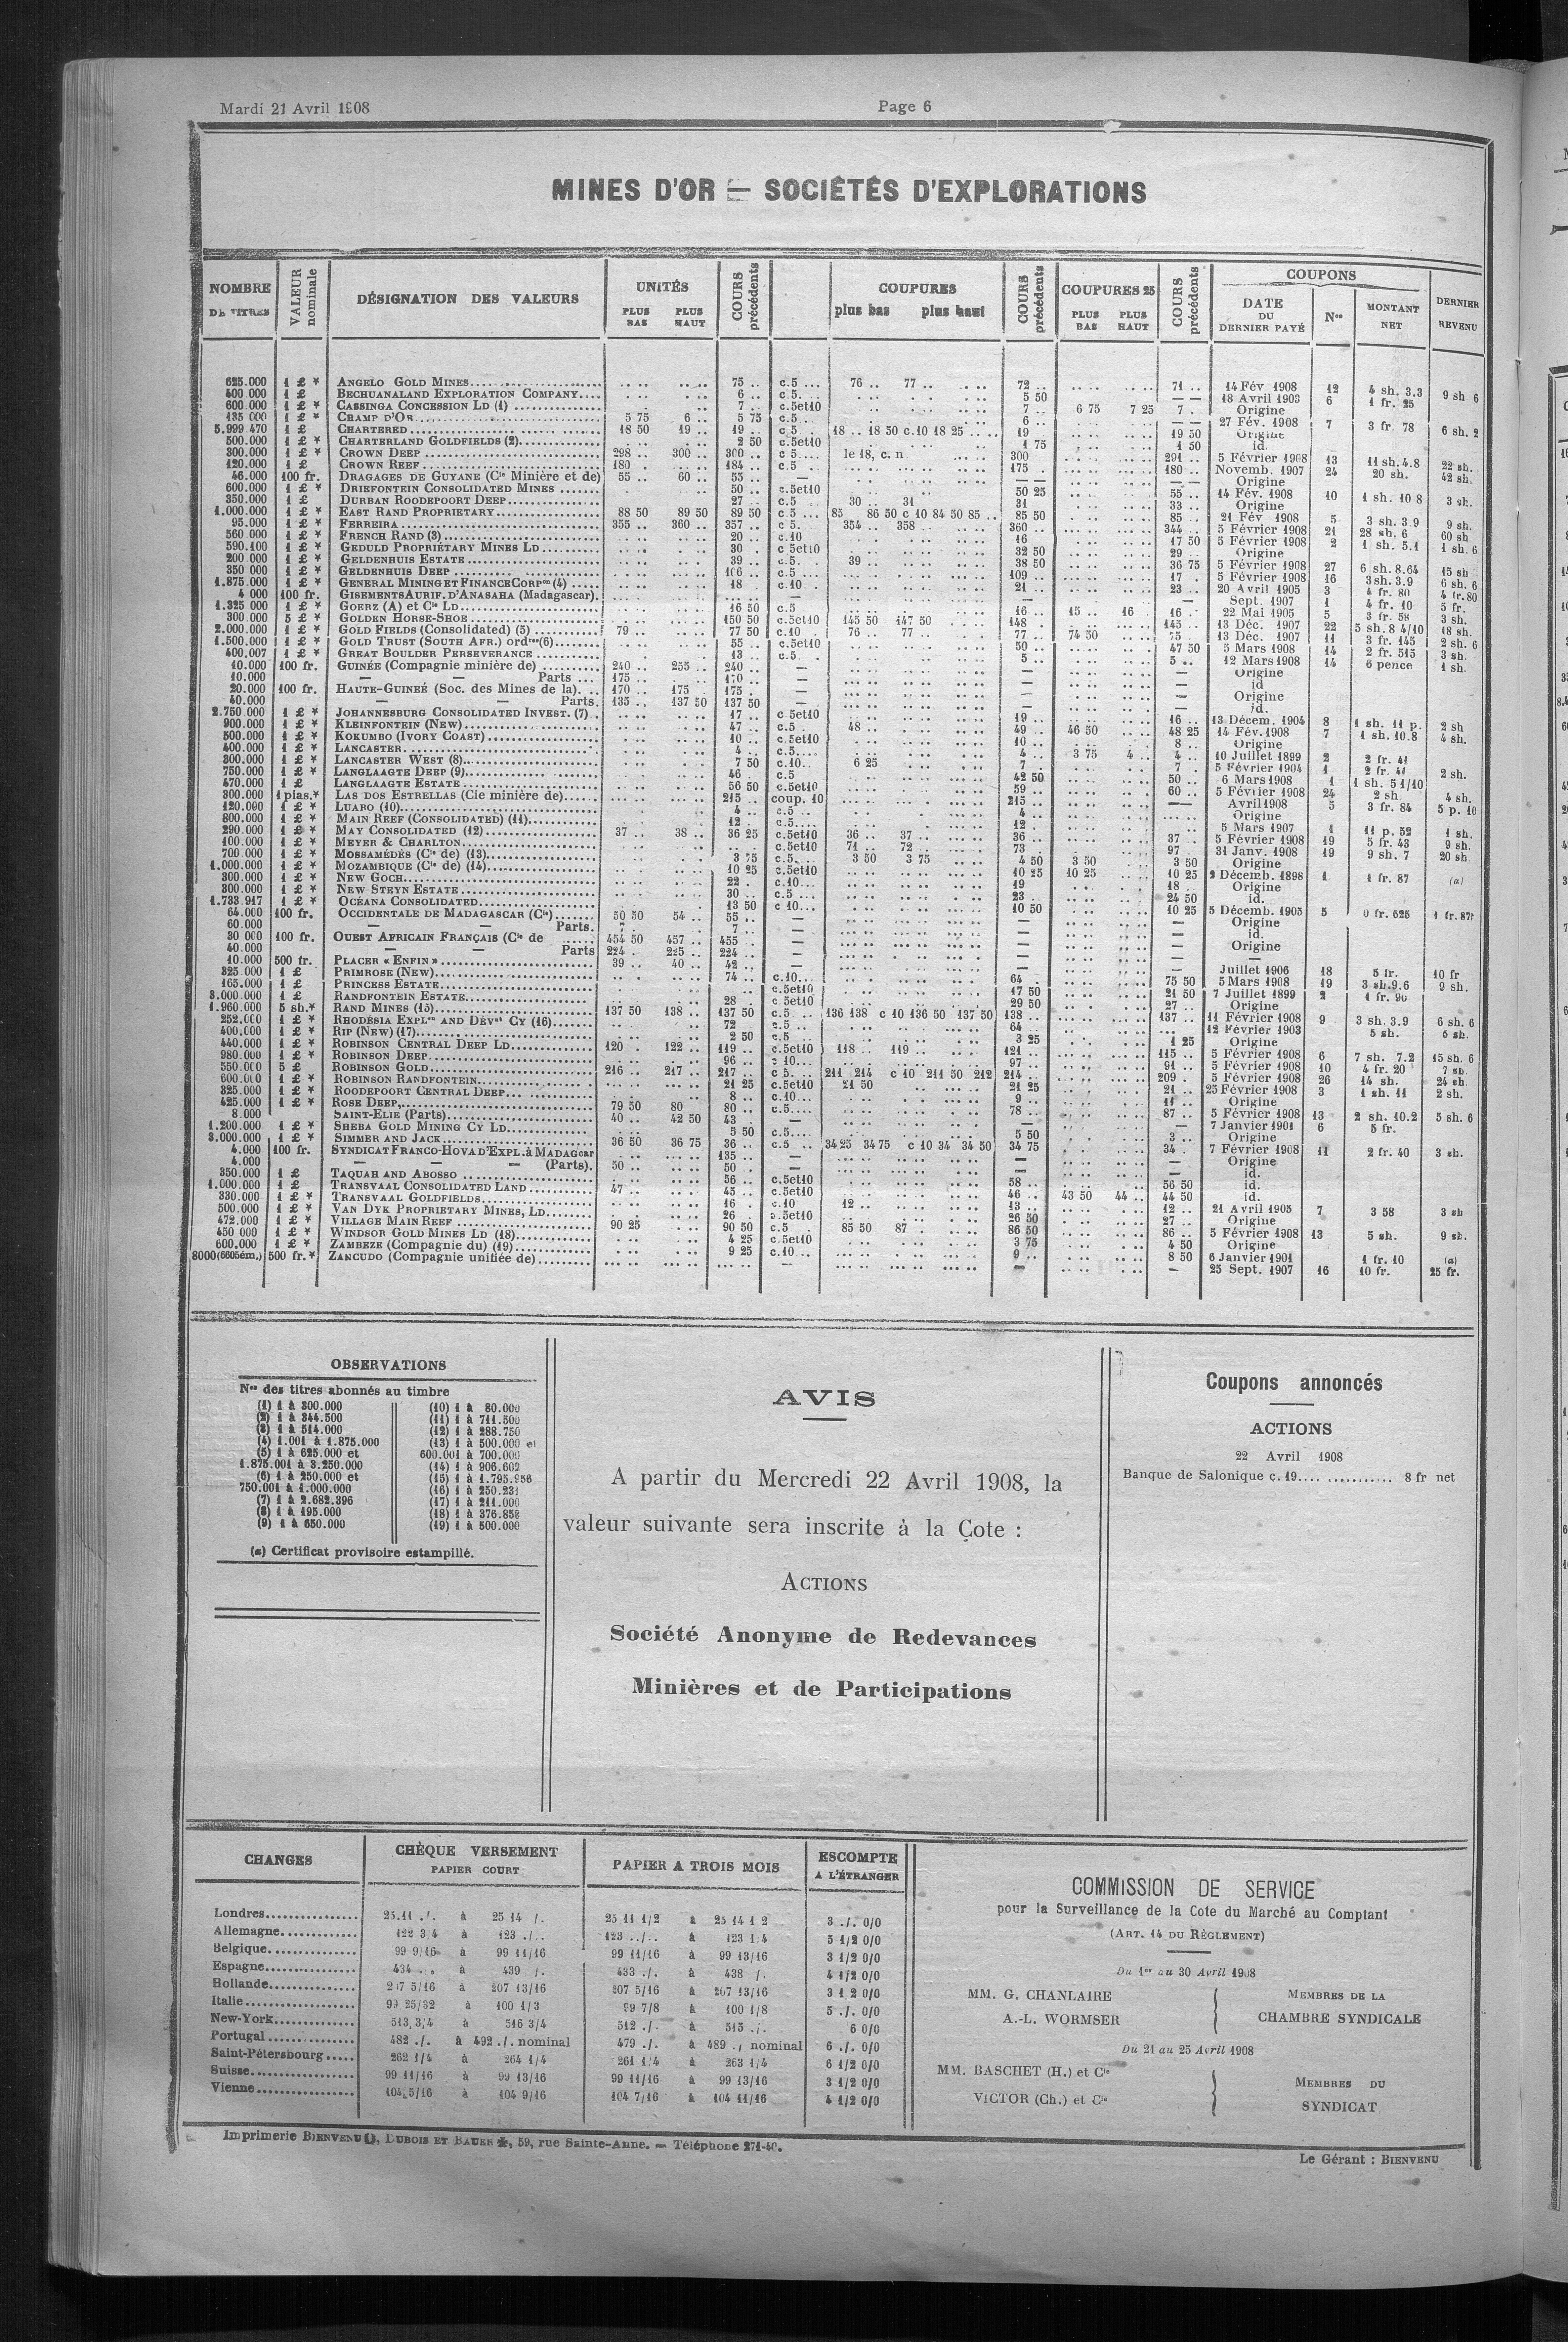 Mardi 21 Avril 1908
Page 6
MINES D'OR — SOCIÉTÉS D'EXPLORATIONS
NOMBRE DE TITRES
VALEUR nominale
DÉSIGNATION DES VALEURS
UNITÉS
PLUS BAS PLUS HAUT
COURS précédents
COUPURES
plus bas plus haut
COURS précédents
COUPURES 25
PLUS BAS PLUS HAUT
COURS précédents
COUPONS
DATE DU DERNIER PAYÉ
Nos
MONTANT NET
DERNIER REVENU
625.000 1 £ * ANGELO GOLD MINES 75 .. c.5 ... 76 .. 77 .. 72 .. 71 .. 14 Fév 1908 12 4 sh. 3.3 9 sh 6
400.000 1 £ BECHUANALAND EXPLORATION COMPANY.... 6 .. c.5. 5 50 18 Avril 1903 6 1 fr. 25
600.000 1 £ * CASSINGA CONCESSION LD (1) 7 .. c.5et10 7 .. 6 75 7 25 7 . Origine
135 000 1 £ * CHAMP D'OR 5 75 6 .. 5 75 c.5 .. 6 .. — — 27 Fév. 1908 7 3 fr. 78 6 sh. 2
5.999 470 1 £ CHARTERED 18 50 19 .. 19 .. c.5 . 18 .. 18 50 c.10 18 25 19 19 50 Origine
500.000 1 £ * CHARTERLAND GOLDFIELDS (2) 2 50 c.5et10 1 75 1 50 id.
300.000 1 £ * CROWN DEEP 298 .. 300 .. 300 .. c 5.... le 18, c. n 300 291 .. 5 Février 1908 13 11 sh. 4.8 22 sh.
120.000 1 £ CROWN REEF 180 . 184 .. c.5 . 175 .. 180 .. Novemb. 1907 24 20 sh. 42 sh.
46.000 100 fr. DRAGAGES DE GUYANE (Cie Minière et de) 55 .. 60 .. 55 .. — — — Origine
600.000 1 £ * DRIEFONTEIN CONSOLIDATED MINES 50 .. c.5et10 50 25 55 .. 14 Fév. 1908 10 1 sh. 10 8 3 sh.
350.000 1 £ DURBAN ROODEPOORT DEEP 27 .. c.5 . 30 .. 31 31 33 .. Origine
1.000.000 1 £ * EAST RAND PROPRIETARY 88 50 89 50 89 50 c.5 ... 85 86 50 c 10 84 50 85 .. 85 50 85 .. 21 Fév 1908 5 3 sh. 3.9 9 sh.
95.000 1 £ * FERREIRA 355 .. 360 .. 357 .. c 5. 354 .. 358 360 .. 344 .. 5 Février 1908 21 28 sh. 6 60 sh
560.000 1 £ * FRENCH RAND (3) 20 .. c.10 16 17 50 5 Février 1908 2 1 sh. 5.1 1 sh. 6
590.100 1 £ * GEDULD PROPRIÉTARY MINES LD 30 . c 5et10 32 50 29 .. Origine
200 000 1 £ * GELDENHUIS ESTATE 39 .. c.5. 39 .. 38 50 36 75 5 Février 1908 27 6 sh. 8.64 15 sb
350 000 1 £ * GELDENHUIS DEEP 106 .. c.5 109 .. 17 . 5 Février 1908 16 3 sh. 3.9 6 sh. 6
1.875.000 1 £ * GENERAL MINING ET FINANCE CORPon (4) 18 c.10 21 .. 23 .. 20 Avril 1905 3 4 fr. 80 4 fr. 80
4 000 100 fr. GISEMENTS AURIF. D'ANASAHA (Madagascar). — — Sept. 1907 1 4 fr. 10 5 fr.
1.325 000 1 £ * GOERZ (A) et Cie LD 16 50 c.5 16 .. 15 .. 16 16 .. 22 Mai 1905 5 3 fr. 58 3 sh.
300.000 5 £ * GOLDEN HORSE-SHOE 150 50 c.5et10 145 50 147 50 148 . 145 .. 13 Déc. 1907 22 5 sh. 8 4/10 18 sh.
2.000.000 1 £ * GOLD FIELDS (Consolidated) (5) 79 .. 77 50 c.10 . 76 .. 77 .. 77 .. 74 50 75 13 Déc. 1907 11 3 fr. 145 2 sh. 6
1.500.000 1 £ * GOLD TRUST (SOUTH AFR.) ordres(6) 55 .. c.5et10 50 .. 47 50 5 Mars 1908 14 2 fr. 515 3 sh.
400.007 1 £ * GREAT BOULDER PERSEVERANCE 13 .. c.5. 5 .. 5 .. 12 Mars 1908 14 6 pence 1 sh.
10.000 100 fr. GUINÉE (Compagnie minière de) 240 .. 255 .. 240 .. — — — Origine
10.000 — — Parts 175 .. 170 .. — — — id
20.000 100 fr. HAUTE-GUINEÉ (Soc. des Mines de la). 170 .. 175 175 . — — — Origine
40.000 — — Parts. 135 .. 137 50 137 50 — — — id.
2.750 000 1 £ * JOHANNESBURG CONSOLIDATED INVEST. (7) 17 .. c 5et10 19 .. 16 .. 13 Décem. 1904 8 1 sh. 11 p. 2 sh
900.000 1 £ * KLEINFONTEIN (NEW) 47 .. c.5 . 48 .. 49 .. 46 50 48 25 14 Fév. 1908 7 1 sh. 10.8 4 sh.
500.000 1 £ * KOKUMBO (IVORY COAST) 10 .. c.5et10 10 .. 8 .. Origine
400.000 1 £ * LANCASTER 4 .. c.5.... 4 .. 3 75 4 .. 4 .. 10 Juillet 1899 2 2 fr. 41
300.000 1 £ * LANCASTER WEST (8) 7 50 c.10.. 6 25 7 . 7 . 5 Février 1904 1 2 fr. 41 2 sh.
750.000 1 £ * LANGLAAGTE DEEP (9) 46 . c.5 42 50 50 .. 6 Mars 1908 1 1 sh. 5 1/10
470.000 1 £ LANGLAAGTE ESTATE 56 50 c.5et10 59 .. 60 .. 5 Février 1908 24 2 sh 4 sh.
300.000 1 pias.* LAS DOS ESTRELLAS (Cie minière de) 215 .. coup. 10 215 .. — Avril 1908 5 3 fr. 84 5 p. 10
120.000 1 £ * LUABO (10) 4 .. c.5 .. 4 .. Origine
800.000 1 £ * MAIN REEF (CONSOLIDATED) (11) 12 .. c.5.... 12 .. 5 Mars 1907 1 11 p. 52 1 sh.
290.000 1 £ * MAY CONSOLIDATED (12) 37 .. 38 .. 36 25 c.5et10 36 .. 37 .. 36 .. 37 . 5 Février 1908 19 5 fr. 43 9 sh.
100.000 1 £ * MEYER & CHARLTON c.5et10 71 .. 72 .. 73 .. 97 .. 31 Janv. 1908 19 9 sh. 7 20 sh
700.000 1 £ * MOSSAMÉDÈS (Cie de) (13) 3 75 c.5. 3 50 3 75 4 50 3 50 3 50 Origine
1.000.000 1 £ * MOZAMBIQUE (Cie de) (14) 10 25 c.5et10 10 25 10 25 10 25 2 Décemb. 1898 1 1 fr. 87 (a)
300.000 1 £ * NEW GOCH 22 . c.10... 19 18 .. Origine
300.000 1 £ * NEW STEYN ESTATE 30 .. c.5 ... 23 .. 24 50 id.
1.733.917 1 £ * OCÉANA CONSOLIDATED 13 50 c 10... 10 50 10 25 5 Décemb. 1905 5 0 fr. 625 1 fr. 87
64.000 100 fr. OCCIDENTALE DE MADAGASCAR (Cie) 50 50 54 .. 55 .. — — — Origine
60.000 — — Parts. 7 . 7 .. — — — id.
30 000 100 fr. OUEST AFRICAIN FRANÇAIS (Cie de 454 50 457 .. 455 .. — — — Origine
40.000 — — Parts 224 . 225 .. 224 .. — — —
10.000 500 fr. PLACER « ENFIN » 39 .. 40 .. 42 .. — — — Juillet 1906 18 5 fr. 10 fr
325.000 1 £ PRIMROSE (NEW) 74 .. c.10... 64 . 75 50 5 Mars 1908 19 3 sh. 9.6 9 sh.
165.000 1 £ PRINCESS ESTATE c.5et10 17 50 21 50 7 Juillet 1899 2 1 fr. 90
3.000.000 1 £ RANDFONTEIN ESTATE 28 . c.5et10 29 50 27 .. Origine
1.960.000 5 sh.* RAND MINES (15) 137 50 138 .. 137 50 c.5 . 136 138 c 10 136 50 137 50 138 .. 137 .. 11 Février 1908 9 3 sh. 3.9 6 sh. 6
252.000 1 £ * RHODÉSIA EXPLon AND DÉVnt CY (16) 72 c.5 .. 64 .. 12 Février 1903 5 sh. 5 sh.
400.000 1 £ * RIP (NEW) (17) 2 50 c.5 3 25 1 25 Origine
440.000 1 £ * ROBINSON CENTRAL DEEP LD 120 . 122 .. 119 .. c.5et10 118 .. 119 .. 121 .. 115 .. 5 Février 1908 6 7 sh. 7.2 15 sh. 6
980.000 1 £ * ROBINSON DEEP 96 .. c 10... 97 .. 91 .. 5 Février 1908 10 4 fr. 20 7 sb.
550.000 5 £ ROBINSON GOLD 216 .. 217 .. 217 .. c 5. 211 214 c 10 211 50 212 214 .. 209 . 5 Février 1908 26 14 sh. 24 sh
600.000 1 £ * ROBINSON RANDFONTEIN 21 25 c.5et10 21 50 21 25 21 .. 25 Février 1908 3 1 sh. 11 2 sh.
325.000 1 £ * ROODEPOORT CENTRAL DEEP 8 .. c.10... 9 .. 11 Origine
425.000 1 £ * ROSE DEEP 79 50 80 80 .. c.5.... 78 .. 87 .. 5 Février 1908 13 2 sh. 10.2 5 sh. 6
8.000 SAINT-ELIE (Parts) 40 .. 42 50 43 . — — 7 Janvier 1901 6 5 fr.
1.200.000 1 £ * SHEBA GOLD MINING CY LD 5 50 c.5.... 5 50 3 .. Origine
3.000.000 1 £ * SIMMER AND JACK 36 50 36 75 36 .. c.5 .. 34 25 34 75 c 10 34 34 50 34 75 34 . 7 Février 1908 11 2 fr. 40 3 sh.
4.000 100 fr. SYNDICAT FRANCO-HOVA D'EXPL. à MADAGcar 135 .. — — — Origine
4.000 — — (Parts). 50 .. 50 . — — — id.
350.000 1 £ TAQUAH AND ABOSSO 56 .. c.5et10 58 .. 56 50 id.
1.000.000 1 £ TRANSVAAL CONSOLIDATED LAND 47 .. 45 .. c.5et10 46 .. 43 50 44 .. 44 50 id.
330.000 1 £ * TRANSVAAL GOLDFIELDS 16 . c.10 12 .. 13 .. 12 .. 21 Avril 1905 7 3 58 3 sh
500.000 1 £ * VAN DYK PROPRIETARY MINES, LD 26 . c.5et10 26 50 27 .. Origine
472.000 1 £ * VILLAGE MAIN REEF 90 25 90 50 c.5 . 85 50 87 . 86 50 86 .. 5 Février 1908 13 5 sh. 9 sh.
450 000 1 £ * WINDSOR GOLD MINES LD (18) 4 25 c.5et10 3 75 4 50 Origine
600.000 1 £ * ZAMBEZE (Compagnie du) (19) 9 25 c.10 ... 9 .. 8 50 6 Janvier 1901 1 fr. 10 (a)
8000(6605ém.) 500 fr.* ZANCUDO (Compagnie unifiée de) — — — 25 Sept. 1907 16 10 fr. 25 fr.
OBSERVATIONS
Nos des titres abonnés au timbre
(1) 1 à 300.000
(2) 1 à 344.500
(3) 1 à 514.000
(4) 1.001 à 1.875.000
(5) 1 à 625.000 et
1.875.001 à 3.250.000
(6) 1 à 250.000 et
750.001 à 1.000.000
(7) 1 à 2.682.396
(8) 1 à 195.000
(9) 1 à 650.000
(10) 1 à 80.000
(11) 1 à 711.500
(12) 1 à 288.750
(13) 1 à 500.000 et
600.001 à 700.000
(14) 1 à 906.602
(15) 1 à 1.795.956
(16) 1 à 250.231
(17) 1 à 211.000
(18) 1 à 376.858
(19) 1 à 500.000
(a) Certificat provisoire estampillé.
AVIS
A partir du Mercredi 22 Avril 1908, la
valeur suivante sera inscrite à la Cote :
ACTIONS
Société Anonyme de Redevances
Minières et de Participations
Coupons annoncés
ACTIONS
22 Avril 1908
Banque de Salonique c. 19.... ............ 8 fr net
CHANGES
CHÈQUE VERSEMENT
PAPIER COURT
PAPIER A TROIS MOIS
ESCOMPTE
A L'ÉTRANGER
Londres 25.11 ./. à 25 14 /. 25 11 1/2 à 25 14 1 2 3 ./. 0/0
Allemagne 122 3/4 à 123 ./.. 123 ../.. à 123 1/4 5 1/2 0/0
Belgique 99 9/16 à 99 11/16 99 11/16 à 99 13/16 3 1/2 0/0
Espagne 434 . . à 439 /. 433 ./. à 438 /. 4 1/2 0/0
Hollande 207 5/16 à 207 13/16 207 5/16 à 207 13/16 3 1 2 0/0
Italie 99 25/32 à 100 1/3 99 7/8 à 100 1/8 5 ./. 0/0
New-York 513,3/4 à 516 3/4 512 ./. à 515 ./. 6 0/0
Portugal 482 ./. à 492 ./. nominal 479 ./. à 489 ./ nominal 6 ./. 0/0
Saint-Pétersbourg 262 1/4 à 264 1/4 261 1/4 à 263 1/4 6 1/2 0/0
Suisse 99 11/16 à 99 13/16 99 11/16 à 99 13/16 3 1/2 0/0
Vienne 104 5/16 à 104 9/16 104 7/16 à 104 11/16 4 1/2 0/0
COMMISSION DE SERVICE
pour la Surveillance de la Cote du Marché au Comptant
(ART. 14 DU RÈGLEMENT)
Du 1er au 30 Avril 1908
MM. G. CHANLAIRE
A.-L. WORMSER
MEMBRES DE LA
CHAMBRE SYNDICALE
Du 21 au 25 Avril 1908
MM. BASCHET (H.) et Cie
VICTOR (Ch.) et Cie
MEMBRES DU
SYNDICAT
Imprimerie BIENVENU, DUBOIS ET BAUER, 59, rue Sainte-Anne. — Téléphone 271-40.
Le Gérant : BIENVENU